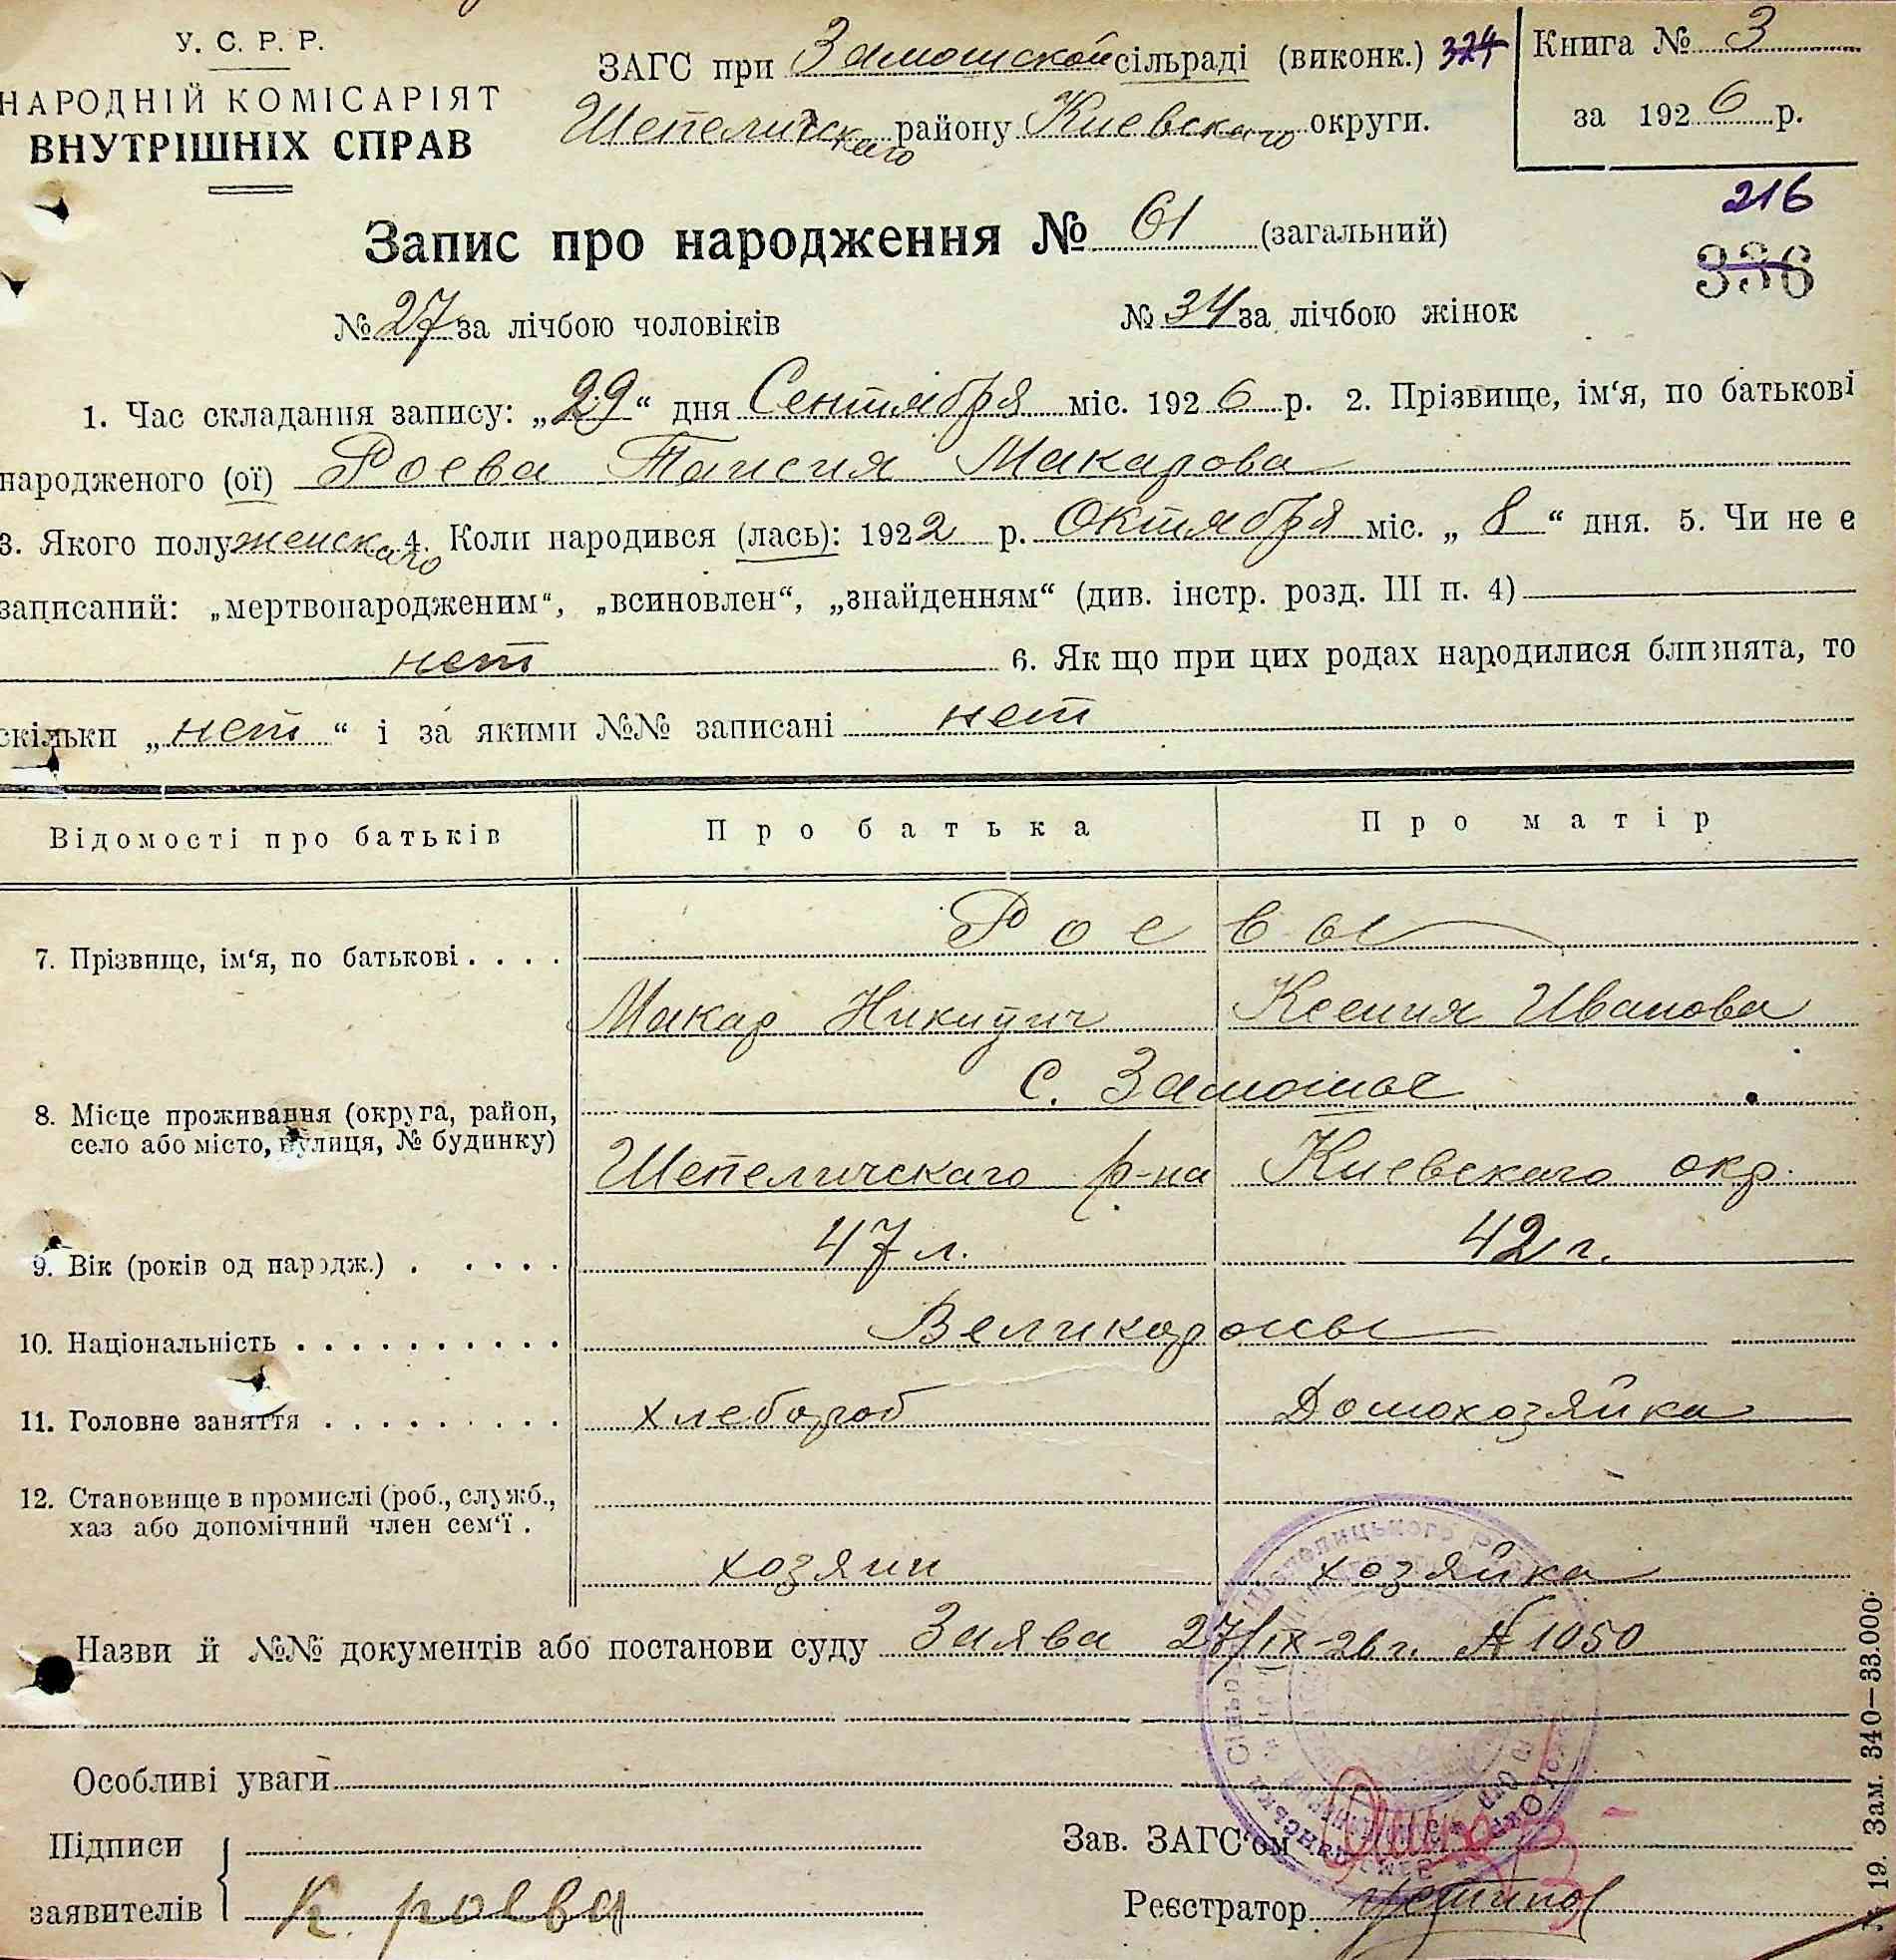 У. С. Р. Р.
НАРОДНІЙ КОМІСАРІЯТ
ВНУТРІШНІХ СПРАВ
ЗАГС при Замошской сільраді (виконк.) 324
Шепеличскаго району Киевскаго округи.
Книга № 3
за 1926 р.
216
336
Запис про народження № 61 (загальний)
№ 27 за лічбою чоловіків № 34 за лічбою жінок
1. Час складання запису: „29“ дня Сентября міс. 1926 р. 2. Прізвище, ім‘я, по батькові
народженого (ої) Роева Таисия Макарова
3. Якого полу женскаго 4. Коли народився (лась): 1922 р. Октября міс. „8“ дня. 5. Чи не є
записаний: „мертвонародженим“, „всиновлен“, „знайденням“ (див. інстр. розд. III п. 4)
нет 6. Як що при цих родах народилися близнята, то
скільки „нет“ і за якими №№ записані нет
Відомості про батьків Про батька Про матір
Роевы
7. Прізвище, ім‘я, по батькові . . . .
Макар Никитич Ксения Иванова
С. Замошье
8. Місце проживання (округа, район,
село або місто, вулиця, № будинку)
Шепеличскаго р-на Киевскаго окр.
9. Вік (років од народж.) . . . . . 47 л. 42 г.
10. Національність . . . . . . . . . . Великоросы
11. Головне заняття . . . . . . . . . хлебороб Домохозяйка
12. Становище в промислі (роб., служб.,
хаз або допомічний член сем‘ї .
хозяин хозяйка
Назви й №№ документів або постанови суду Заява 27/IX-26 г. № 1050
Особливі уваги
Підписи
заявителів К. роева
Зав. ЗАГС‘ом
Реєстратор
19. Зам. 340—33.000.